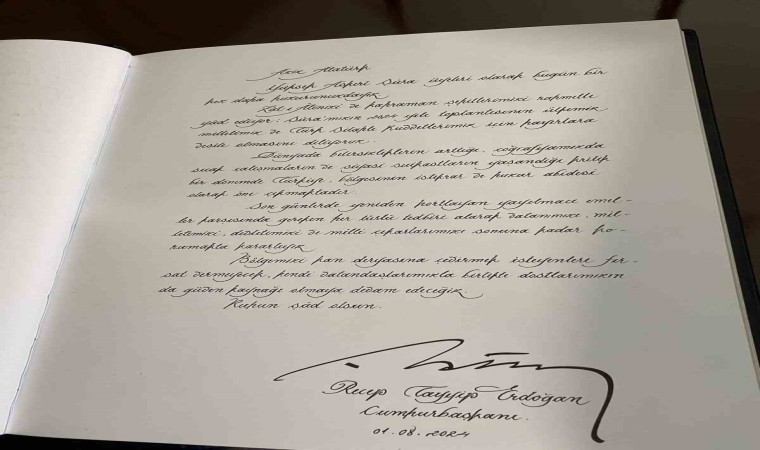 Aziz Atatürk
Yüksek Askerî Şûra üyeleri olarak bugün bir
kez daha huzurunuzdayız.
Zât-ı Âlinizi ve kahraman şehitlerimizi rahmetle
yâd ediyor; Şûra'mızın 2024 yılı toplantısının ülkemiz,
milletimiz ve Türk Silahlı Kuvvetlerimiz için hayırlara
vesile olmasını diliyoruz.
Dünyada belirsizliklerin arttığı, coğrafyamızda
sıcak çatışmaların ve siyasi suikastların yaşandığı kritik
bir dönemde Türkiye, bölgesinin istikrar ve huzur abidesi
olarak öne çıkmaktadır.
Son günlerde yeniden hortlayan yayılmacı emel-
ler karşısında gereken her türlü tedbiri alarak vatanımızı, mil-
letimizi, devletimizi ve milli çıkarlarımızı sonuna kadar ko-
rumakta kararlıyız.
Bölgemizi kan deryasına çevirmek isteyenlere fır-
sat vermeyecek, kendi vatandaşlarımızla birlikte dostlarımızın
da güven kaynağı olmaya devam edeceğiz.
Ruhun şâd olsun.
Recep Tayyip Erdoğan
Cumhurbaşkanı
01.08.2024